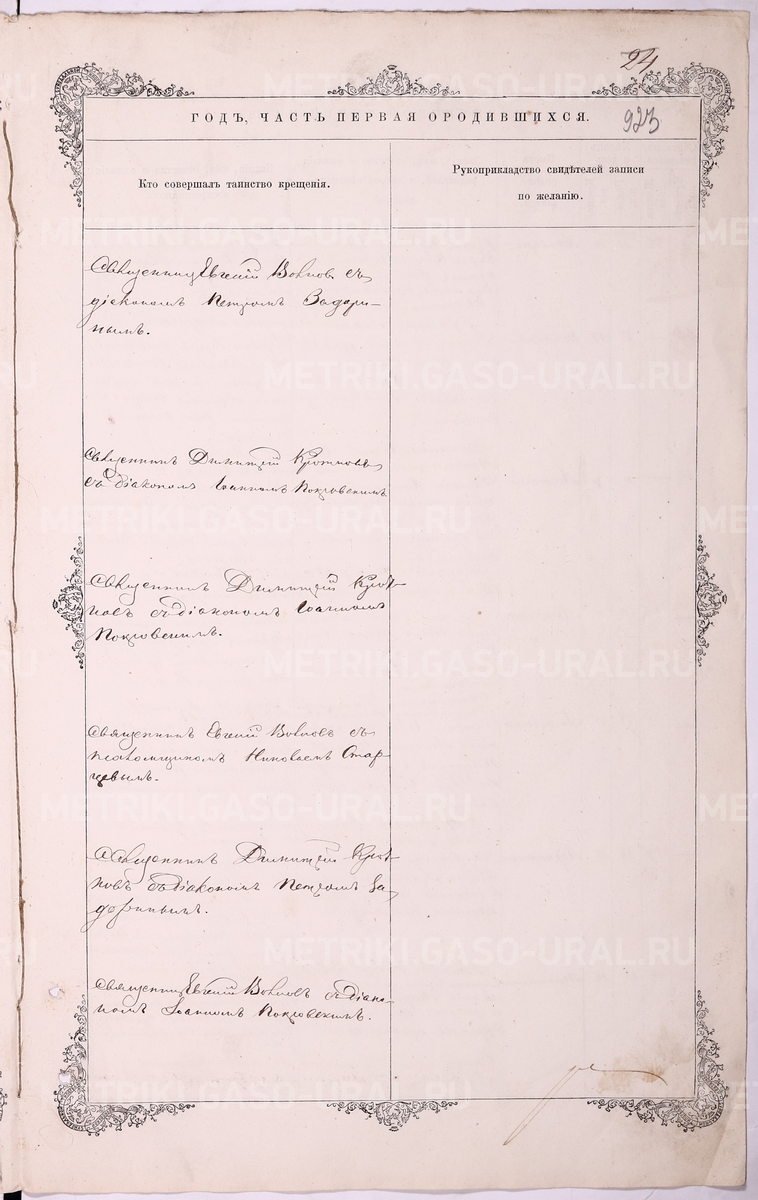 24
ГОДЪ, ЧАСТЬ ПЕРВАЯ О РОДИВШИХСЯ.
923
Кто совершалъ таинство крещенія.
Рукоприкладство свидѣтелей записи
по желанію.
Священникъ Евгеній съ
діакономъ Петромъ
нымъ.
Священникъ Димитрій
съ діакономъ Іоанномъ Покровскимъ
Священникъ Димитрій
съ діакономъ Іоанномъ
Покровскимъ.
Священникъ Евгеній съ
псаломщикомъ Николаемъ Стар-
цевымъ.
Священникъ Димитрій
съ діакономъ Петромъ
Священникъ Евгеній съ діако-
номъ Іоанномъ Покровскимъ.
METRIKI.GASO-URAL.RU